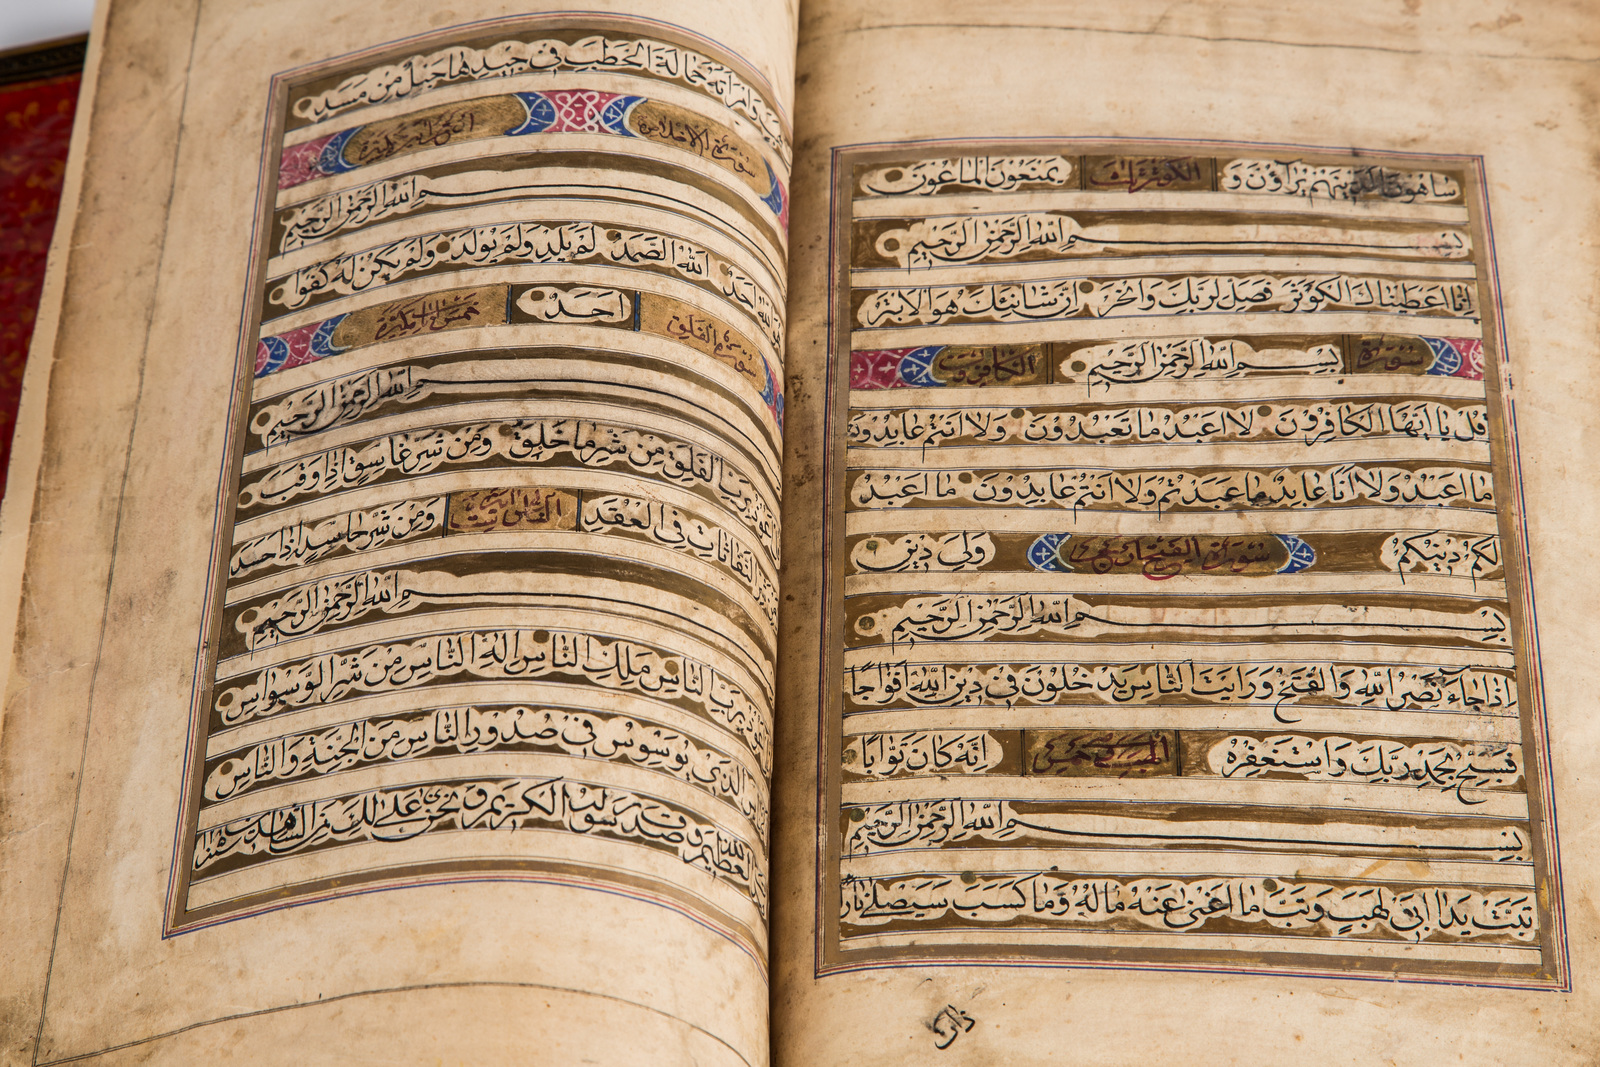 ساهون الذينهم يراؤن و الكوثر ثلث يمنعون الماعون
بسم الله الرحمن الرحيم
انا اعطيناك الكوثر فصل لربك وانحر ان شانئك هو الابتر
سورة بسم الله الرحمن الرحيم الكافرون
قل يا ايها الكافرون لا اعبد ما تعبدون ولا انتم عابدون
ما اعبد ولا انا عابد ما عبدتم ولا انتم عابدون ما اعبد
لكم دينكم سورة الفتح ولى دين
بسم الله الرحمن الرحيم
اذا جاء نصر الله والفتح ورايت الناس يدخلون فى دين الله افواجا
فسبح بحمد ربك واستغفره انه كان توابا
بسم الله الرحمن الرحيم
تبت يدا ابى لهب وتب ما اغنى عنه ماله وما كسب سيصلى نارا
وامراته حمالة الحطب فى جيدها حبل من مسد
سورة الاخلاص
بسم الله الرحمن الرحيم
الله احد الله الصمد لم يلد ولم يولد ولم يكن له كفوا
سورة الفلق احد
بسم الله الرحمن الرحيم
اعوذ برب الفلق من شر ما خلق ومن شر غاسق اذا وقب
النفاثات فى العقد ومن شر حاسد اذا حسد
الله الرحمن الرحيم
برب الناس ملك الناس اله الناس من شر الوسواس
الذى يوسوس فى صدور الناس من الجنة والناس
العظيم وصدق رسوله الكريم ونحن على ذلك من الشاهدين